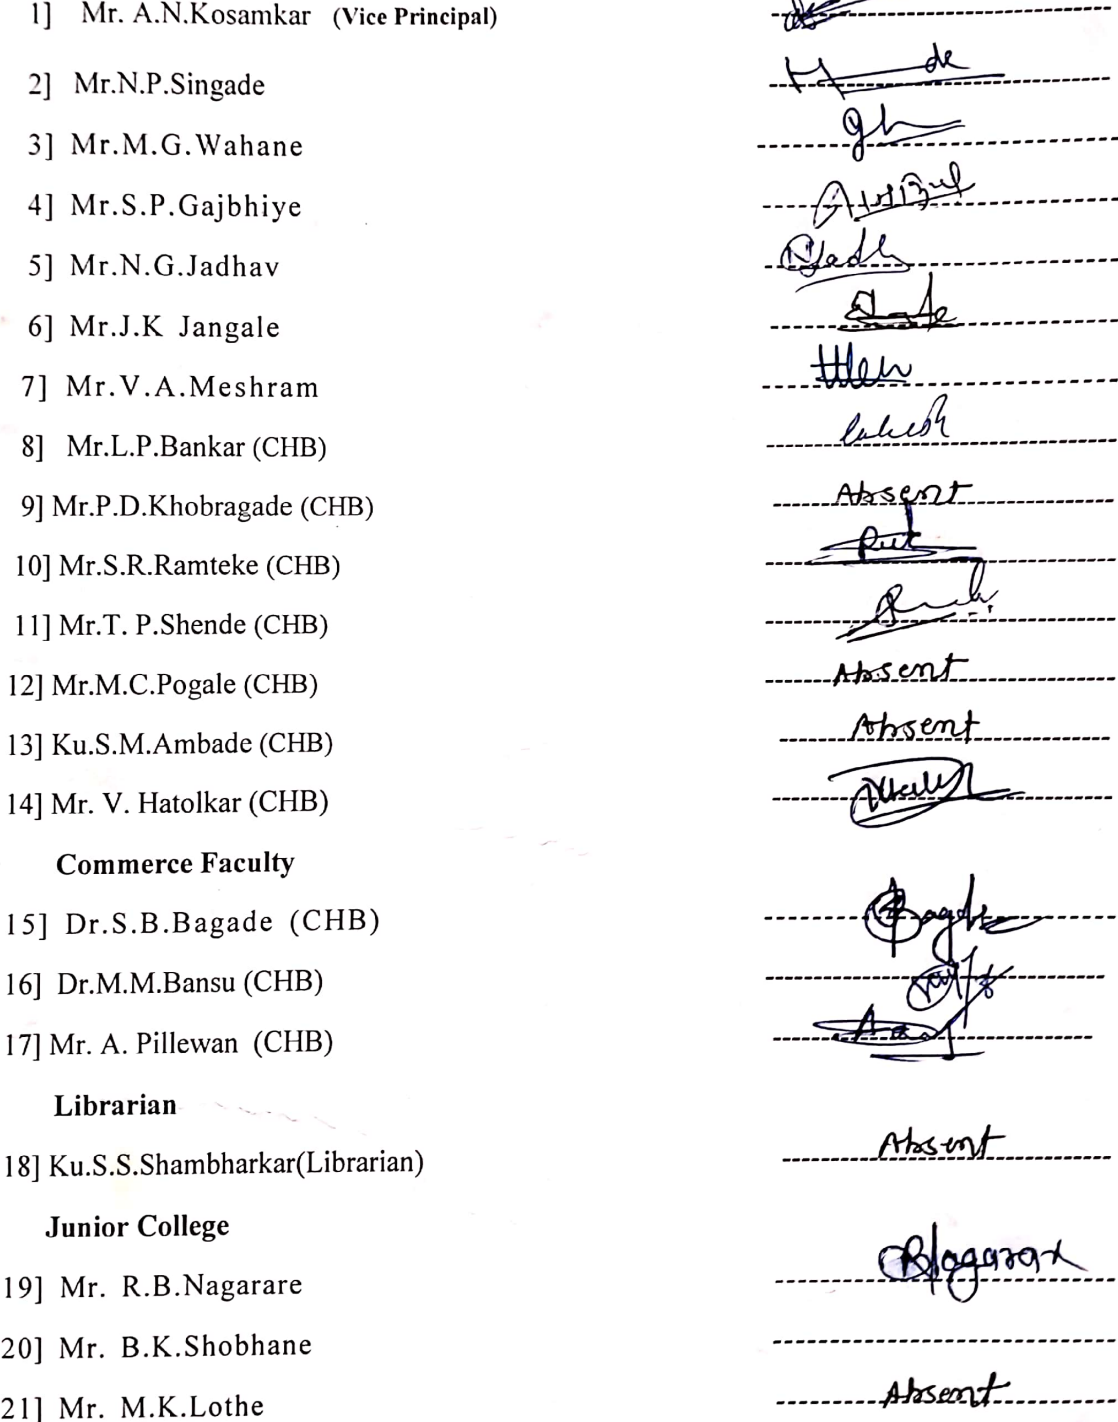 1] Mr. A.N.Kosamkar (Vice Principal)
2] Mr.N.P.Singade
3] Mr.M.G.Wahane
4] Mr.S.P.Gajbhiye
5] Mr.N.G.Jadhav
6] Mr.J.K Jangale
7] Mr.V.A.Meshram
8] Mr.L.P.Bankar (CHB)
9] Mr.P.D.Khobragade (CHB) Absent
10] Mr.S.R.Ramteke (CHB)
11] Mr.T. P.Shende (CHB)
12] Mr.M.C.Pogale (CHB) Absent
13] Ku.S.M.Ambade (CHB) Absent
14] Mr. V. Hatolkar (CHB)
Commerce Faculty
15] Dr.S.B.Bagade (CHB)
16] Dr.M.M.Bansu (CHB)
17] Mr. A. Pillewan (CHB)
Librarian
18] Ku.S.S.Shambharkar(Librarian) Absent
Junior College
19] Mr. R.B.Nagarare
20] Mr. B.K.Shobhane
21] Mr. M.K.Lothe Absent